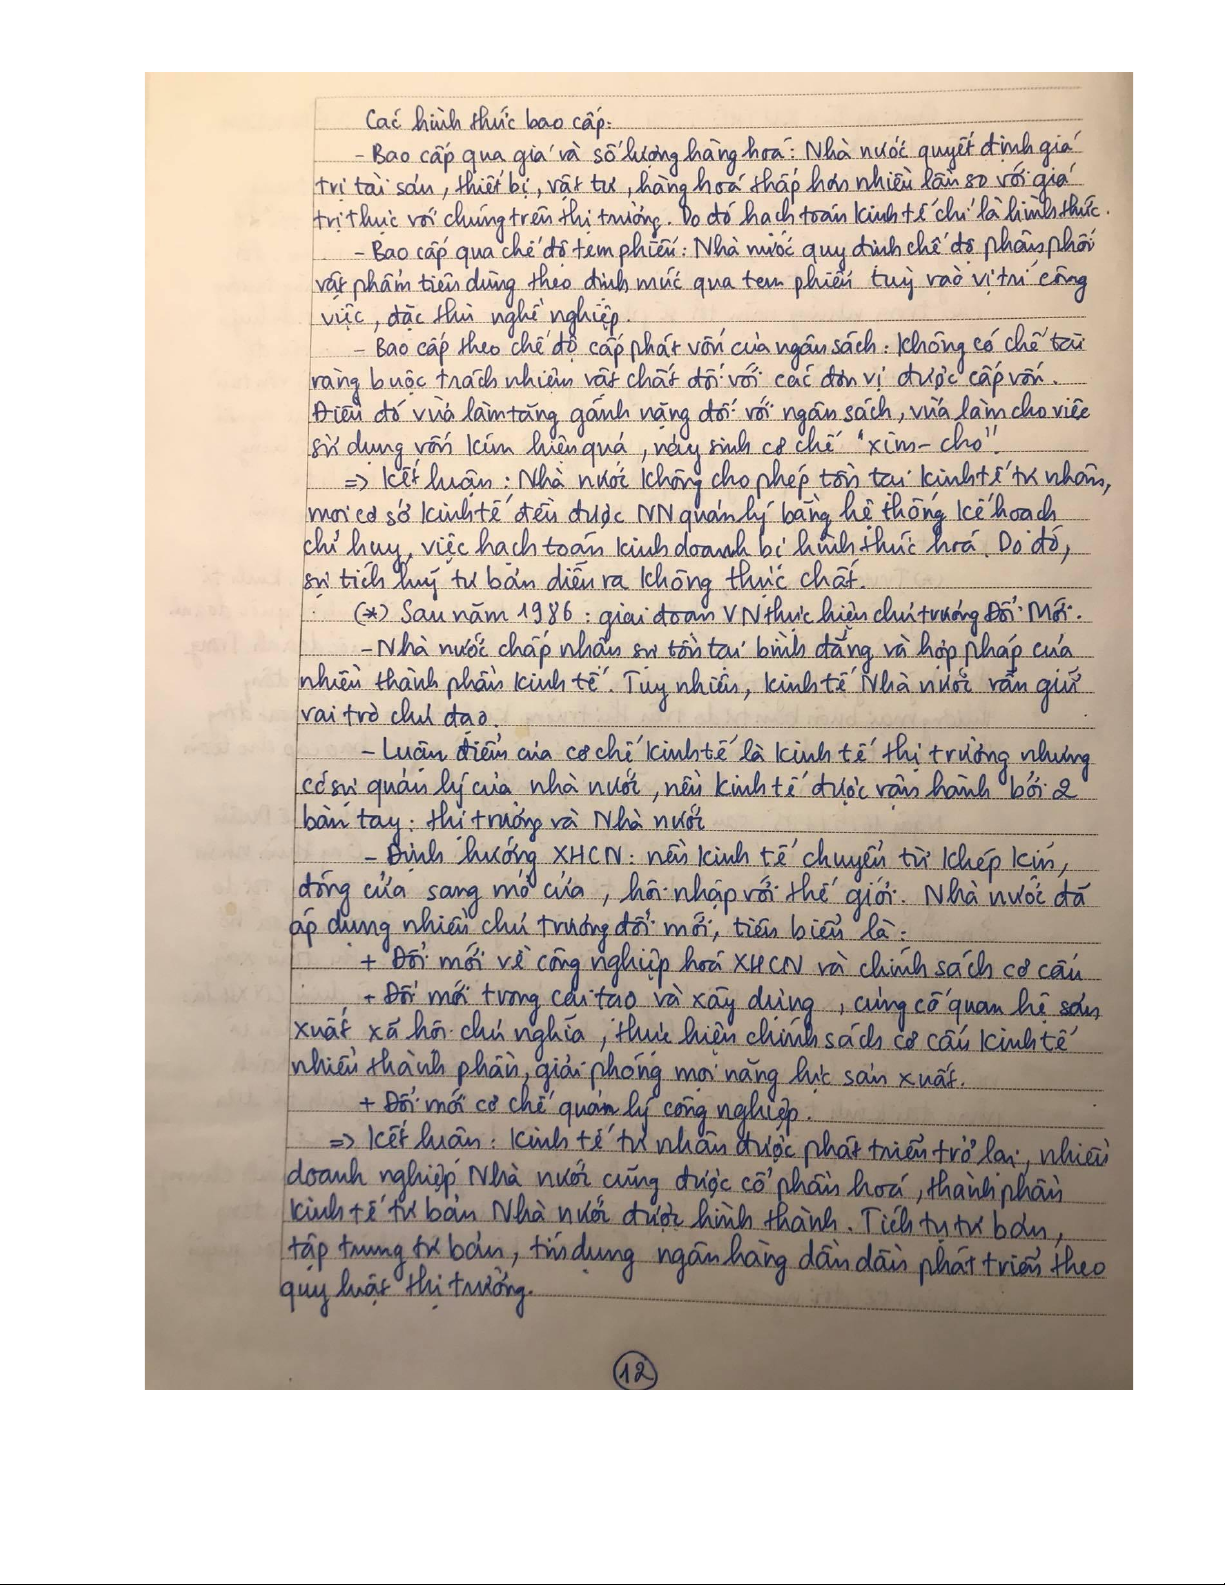 Các hình thức bao cấp:
- Bao cấp qua giá và số lượng hàng hoá: Nhà nước quyết định giá
trị tài sản, thiết bị, vật tư, hàng hoá thấp hơn nhiều lần so với giá
trị thực với chúng trên thị trường. Do đó hạch toán kinh tế chỉ là hình thức.
- Bao cấp qua chế độ tem phiếu: Nhà nước quy định chế độ phân phối
vật phẩm tiêu dùng theo định mức qua tem phiếu tuỳ vào vị trí công
việc, đặc thù nghề nghiệp.
- Bao cấp theo chế độ cấp phát vốn của ngân sách: không có chế tài
ràng buộc trách nhiệm vật chất đối với các đơn vị được cấp vốn.
Điều đó vừa làm tăng gánh nặng đối với ngân sách, vừa làm cho việc
sử dụng vốn kém hiệu quả, nảy sinh cơ chế "xin - cho".
=> Kết luận: Nhà nước không cho phép tồn tại kinh tế tư nhân,
mọi cơ sở kinh tế đều được NN quản lý bằng hệ thống kế hoạch
chỉ huy, việc hạch toán kinh doanh bị hình thức hoá. Do đó,
sự tích luỹ tư bản diễn ra không thực chất.
(*) Sau năm 1986: giai đoạn VN thực hiện chủ trương Đổi Mới.
- Nhà nước chấp nhận sự tồn tại bình đẳng và hợp pháp của
nhiều thành phần kinh tế. Tuy nhiên, kinh tế Nhà nước vẫn giữ
vai trò chủ đạo.
- Luận điểm của cơ chế kinh tế là kinh tế thị trường nhưng
có sự quản lý của nhà nước, nền kinh tế được vận hành bởi 2
bàn tay: thị trường và Nhà nước
- Định hướng XHCN: nền kinh tế chuyển từ khép kín,
đóng cửa sang mở cửa, hội nhập với thế giới. Nhà nước đã
áp dụng nhiều chủ trương đổi mới, tiêu biểu là:
+ Đổi mới về công nghiệp hoá XHCN và chính sách cơ cấu
+ Đổi mới trong cải tạo và xây dựng, củng cố quan hệ sản
xuất xã hội chủ nghĩa, thực hiện chính sách cơ cấu kinh tế
nhiều thành phần, giải phóng mọi năng lực sản xuất.
+ Đổi mới cơ chế quản lý công nghiệp.
=> Kết luận: Kinh tế tư nhân được phát triển trở lại, nhiều
doanh nghiệp Nhà nước cũng được cổ phần hoá, thành phần
kinh tế tư bản Nhà nước được hình thành. Tích tụ tư bản,
tập trung tư bản, tín dụng ngân hàng dần dần phát triển theo
quy luật thị trường.
12